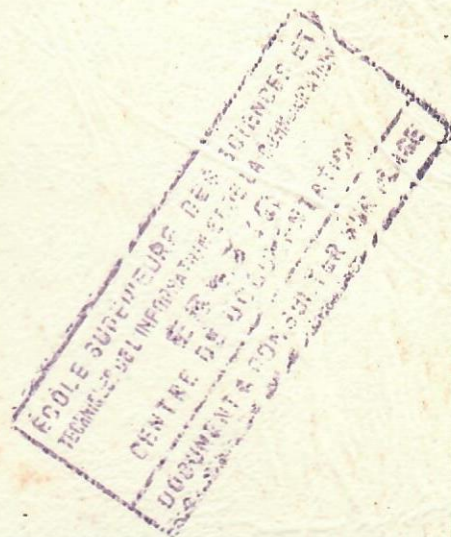 ÉCOLE SUPERIEURE DES SCIENCES ET
TECHNIQUES DE L'INFORMATIQUE ET DE LA COMMUNICATION
CENTRE DE DOCUMENTATION
DOCUMENT A CONSULTER SUR PLACE